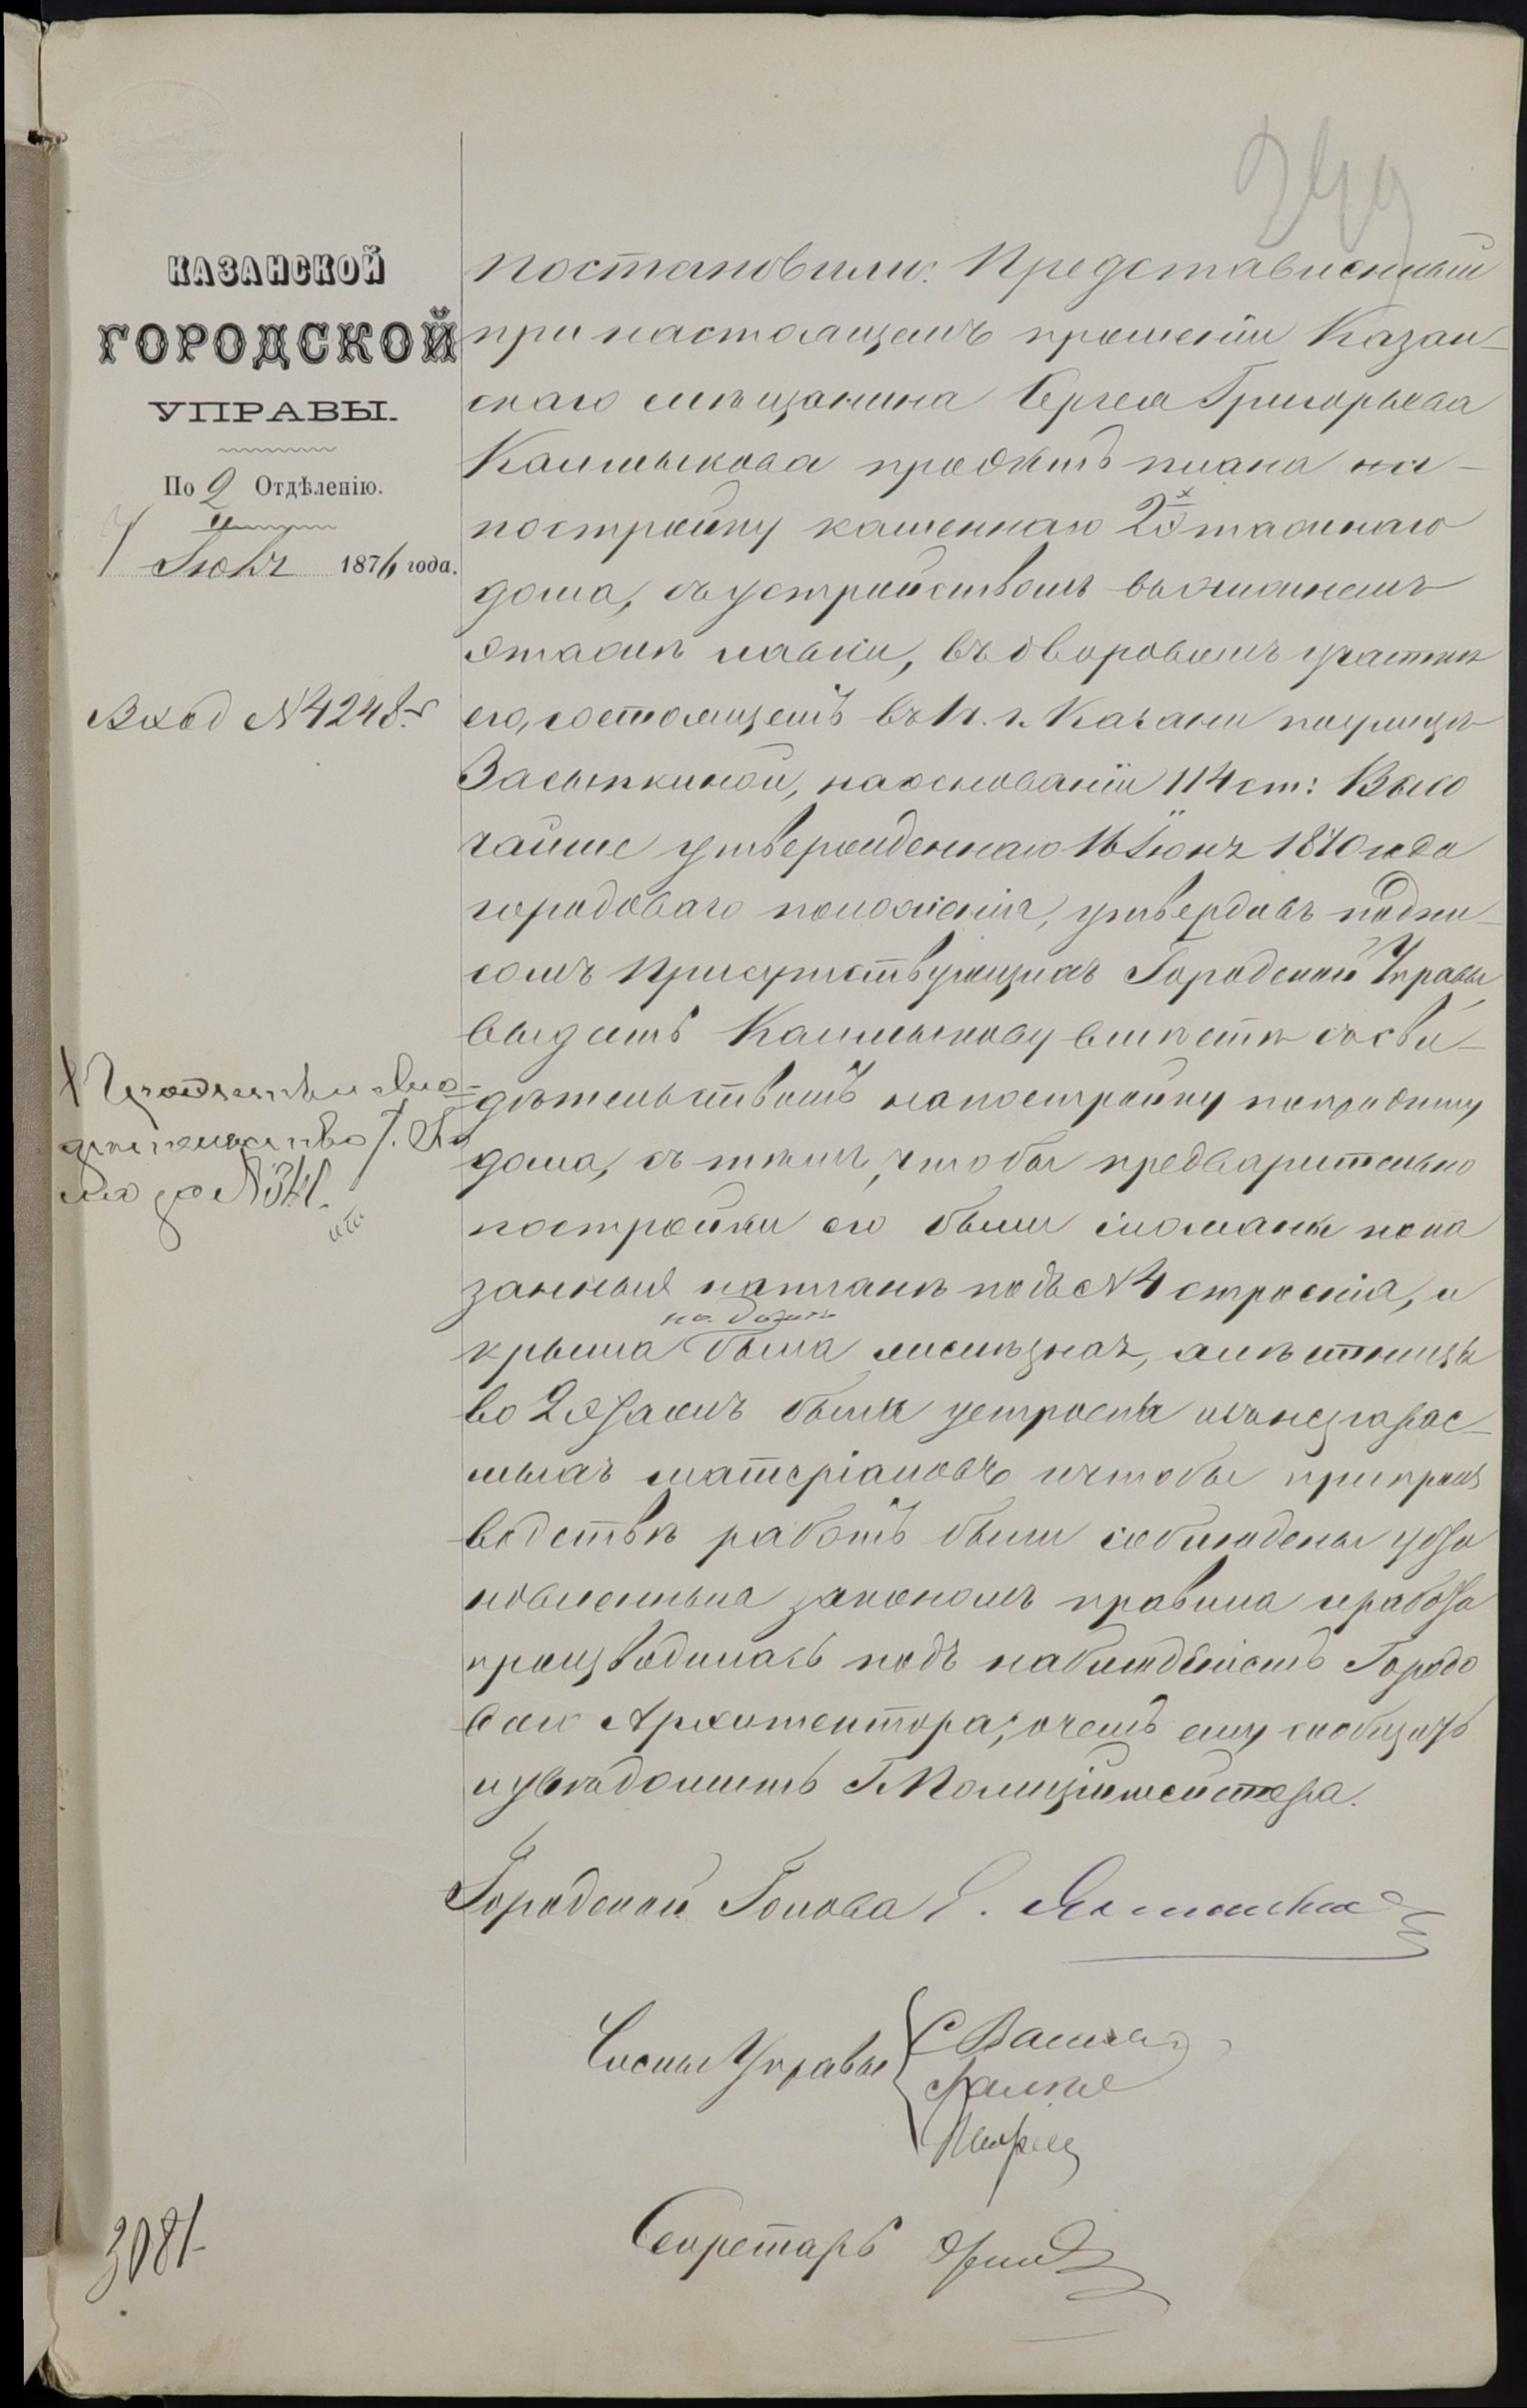 249
КАЗАНСКОЙ
ГОРОДСКОЙ
УПРАВЫ.
По 2 Отдѣленію.
7 Іюня 1876 года.
Вход № 4248.
3081
постановили: Представленный
при настоящемъ прошеніи Казан-
скаго мѣщанина Сергея Григорьева
Калмыкова проэктъ плана на-
постройку каменнаго 2х этажнаго
дома, съ устройствомъ въ нижнемъ
этажѣ лавки, въ дворовомъ участкѣ
его, состоящемъ въ 1 ч. г. Казани по улицѣ
Засыпкиной, на основаніи 114 ст: Высо
чайше утвержденнаго 16 Іюня 1870 года
городоваго положенія, утвердивъ подпи-
сомъ присутствующихъ Городской Управы
выдать Калмыкову вмѣстѣ съ сви-
дѣтельствомъ на постройку по проэкту
дома, съ тѣмъ, чтобы предварительно
постройки его были сломаны пока
занныя на планѣ подъ № 4 строенія, и
крыша на домѣ была желѣзная, а лѣстницы
во 2 этажъ были устроены изъ несгорае-
мыхъ матеріаловъ и чтобы при произ
водствѣ работъ были соблюдены уста
новленныя закономъ правила и работа
производилась подъ наблюденіемъ Городо
ваго Архитектора, о чемъ ему сообщить
и увѣдомить Г Полиціймейстера.
Городской Голова Э. Янишевскій
Члены Управы
Секретарь